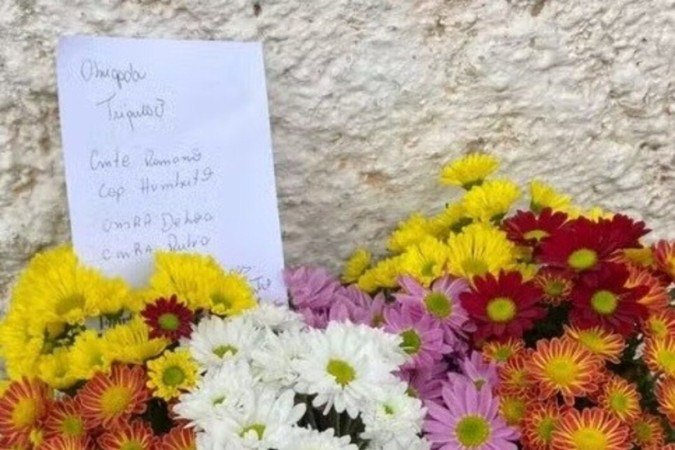 Obrigada
Tripulação
Cmte Romano
Cop Humberto
cmRA Debora
cmRA